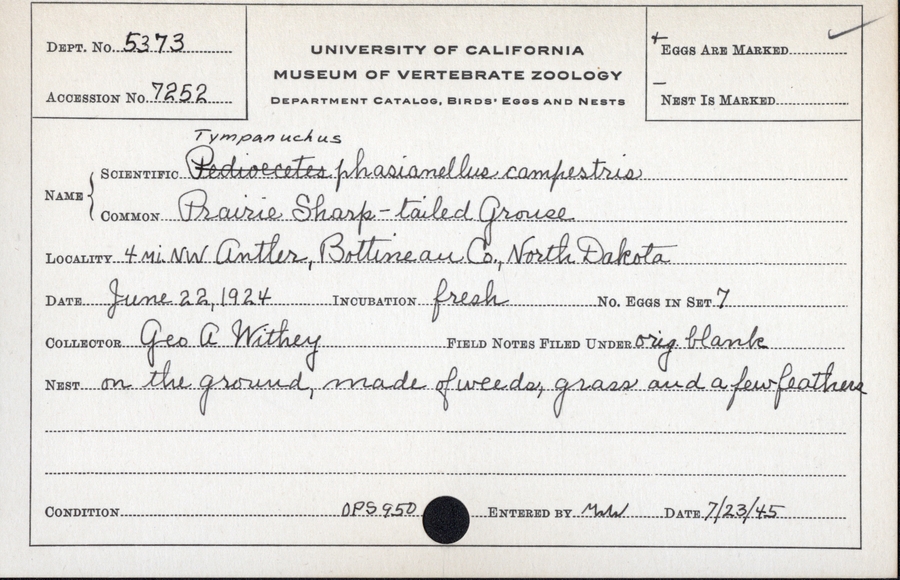 Dept. No. 5373
Accession No. 7252
UNIVERSITY OF CALIFORNIA
MUSEUM OF VERTEBRATE ZOOLOGY
Department Catalog, Birds' Eggs and Nests
+ Eggs Are Marked
— Nest Is Marked
Tympanuchus
Name { Scientific Pedioecetes phasianellus campestris
Common Prairie Sharp-tailed Grouse
Locality 4 mi. NW Antler, Bottineau Co., North Dakota
Date June 22, 1924 Incubation fresh No. Eggs in Set 7
Collector Geo A Withey Field Notes Filed Under orig. blank
Nest on the ground, made of weeds, grass and a few feathers
Condition OPS 950 Entered by Date 7/23/45